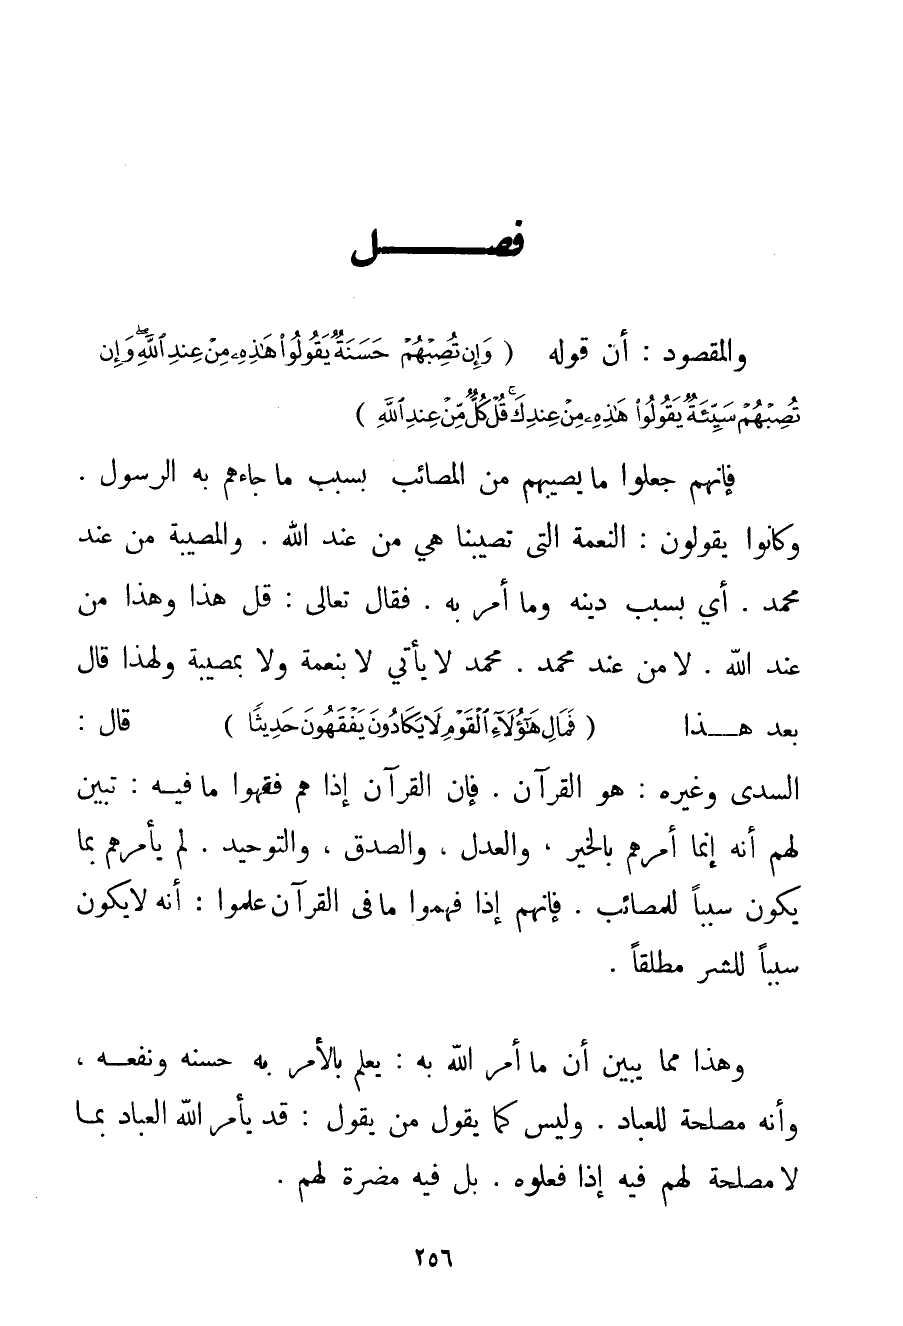 فصـــــــل
والمقصود : أن قوله ( وَإِن تُصِبْهُمْ حَسَنَةٌ يَقُولُوا۟ هَٰذِهِۦ مِنْ عِندِ ٱللَّهِ ۖ وَإِن
تُصِبْهُمْ سَيِّئَةٌ يَقُولُوا۟ هَٰذِهِۦ مِنْ عِندِكَ ۚ قُلْ كُلٌّ مِّنْ عِندِ ٱللَّهِ )
فإنهم جعلوا ما يصيبهم من المصائب بسبب ما جاءهم به الرسول .
وكانوا يقولون : النعمة التى تصيبنا هي من عند الله . والمصيبة من عند
محمد . أي بسبب دينه وما أمر به . فقال تعالى : قل هذا وهذا من
عند الله . لا من عند محمد . محمد لا يأتي لا بنعمة ولا بمصيبة ولهذا قال
بعد هـــذا ( فَمَالِ هَٰٓؤُلَآءِ ٱلْقَوْمِ لَا يَكَادُونَ يَفْقَهُونَ حَدِيثًا ) قال :
السدى وغيره : هو القرآن . فإن القرآن إذا هم فقهوا ما فيـه : تبين
لهم أنه إنما أمرهم بالخير ، والعدل ، والصدق ، والتوحيد . لم يأمرهم بما
يكون سبباً للمصائب . فإنهم إذا فهموا ما فى القرآن علموا : أنه لايكون
سبباً للشر مطلقاً .
وهذا مما يبين أن ما أمر الله به : يعلم بالأمر به حسنه ونفعـه ،
وأنه مصلحة للعباد . وليس كما يقول من يقول : قد يأمر الله العباد بمـا
لا مصلحة لهم فيه إذا فعلوه . بل فيه مضرة لهم .
٢٥٦